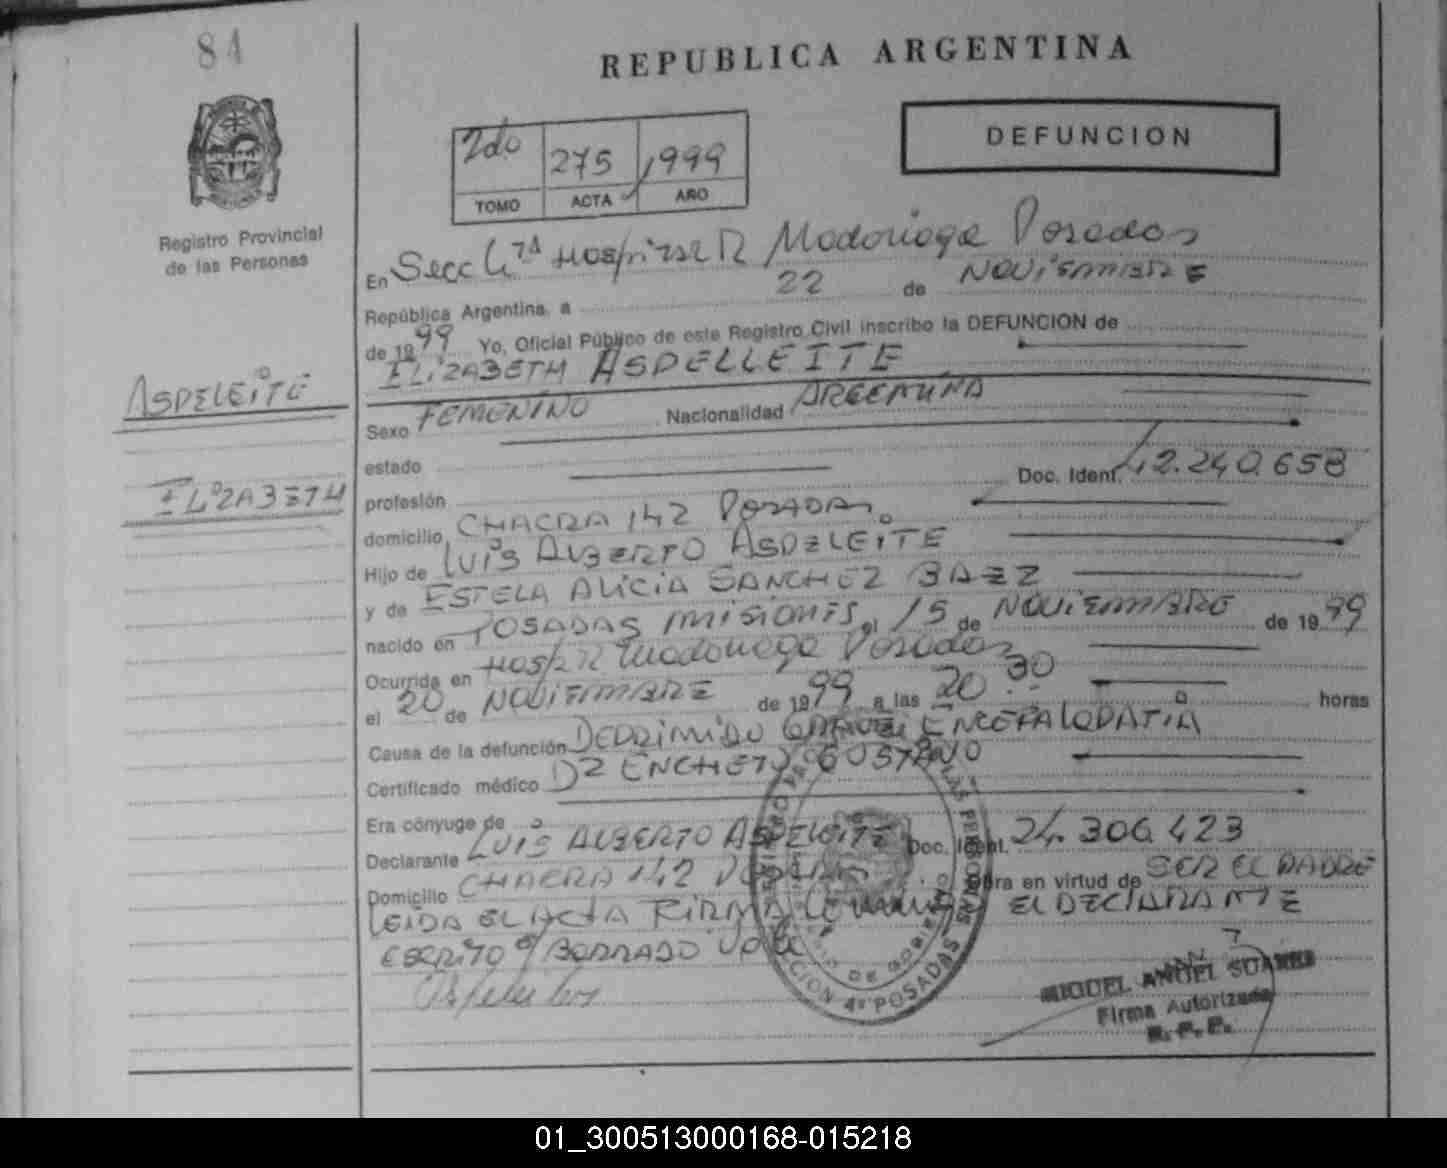 84
REPUBLICA ARGENTINA
DEFUNCION
2do 275 1999
TOMO ACTA AÑO
Registro Provincial
de las Personas
En Secc 4TA Hospital R Madariaga Posadas
República Argentina, a 22 de NOVIEMBRE
de 1999 Yo, Oficial Público de este Registro Civil inscribo la DEFUNCION de
ELIZABETH ASPELLEITE
ASPELEITE
Sexo FEMENINO Nacionalidad ARGENTINA
estado
ELIZABETH
profesión Doc. Ident. 42.240.658
domicilio CHACRA 142 POSADAS
Hijo de LUIS ALBERTO ASPELEITE
y de ESTELA ALICIA SANCHEZ BAEZ
nacido en POSADAS MISIONES el 15 de NOVIEMBRE de 1999
Ocurrida en Hosp R Madariaga Posadas
el 20 de NOVIEMBRE de 1999 a las 20 30 horas
Causa de la defunción DEPRIMIDO GRAVE ENCEFALOPATIA
Certificado médico GUSTAVO
Era cónyuge de
Declarante LUIS ALBERTO ASPELEITE Doc. Ident. 24.306.423
Domicilio CHACRA 142 POSADAS Obra en virtud de SER EL PADRE
LEIDA EL ACTA FIRMA EL DECLARANTE
ESCRITO S/ BORRADO VALE
SECCION 4ª POSADAS
MIGUEL ANGEL SUAREZ
Firma Autorizada
R. P. P.
01_300513000168-015218